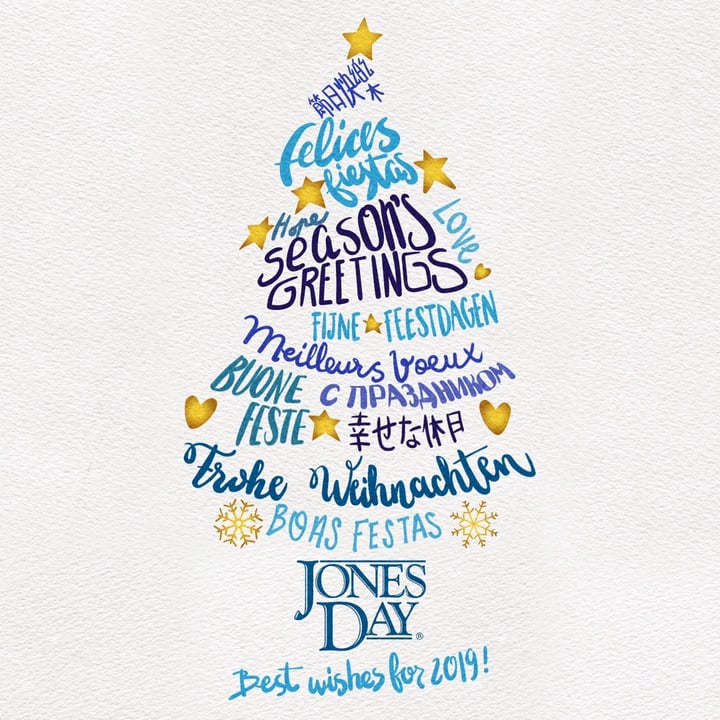 節日快樂
felices
fiestas
Hope
LOVE
SEASON'S
GREETINGS
FIJNE FEESTDAGEN
Meilleurs Voeux
BUONE
FESTE
С ПРАЗДНИКОМ
幸せな休日
Frohe Weihnachten
BOAS FESTAS
JONES
DAY®
Best wishes for 2019!